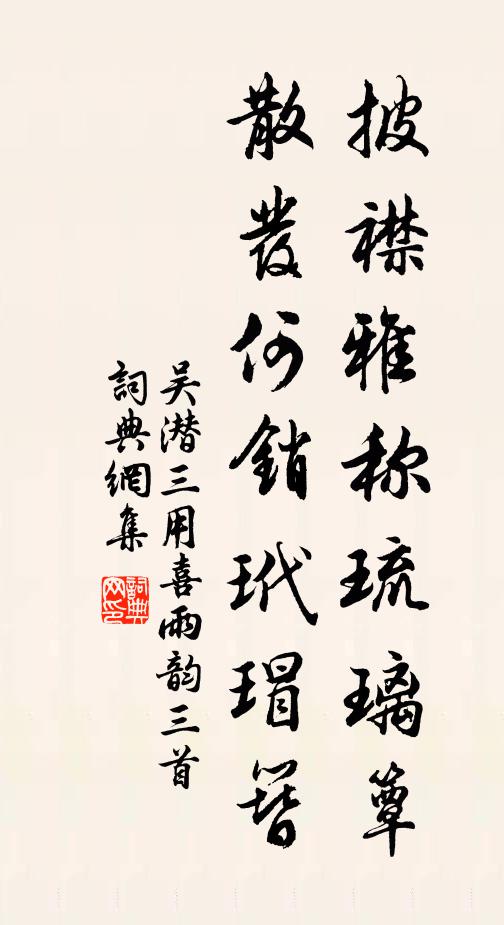 披襟雅称琉璃簟
散發何銷玳瑁簪
吴潜三用喜雨韵三首
詞典網集
詞典網印